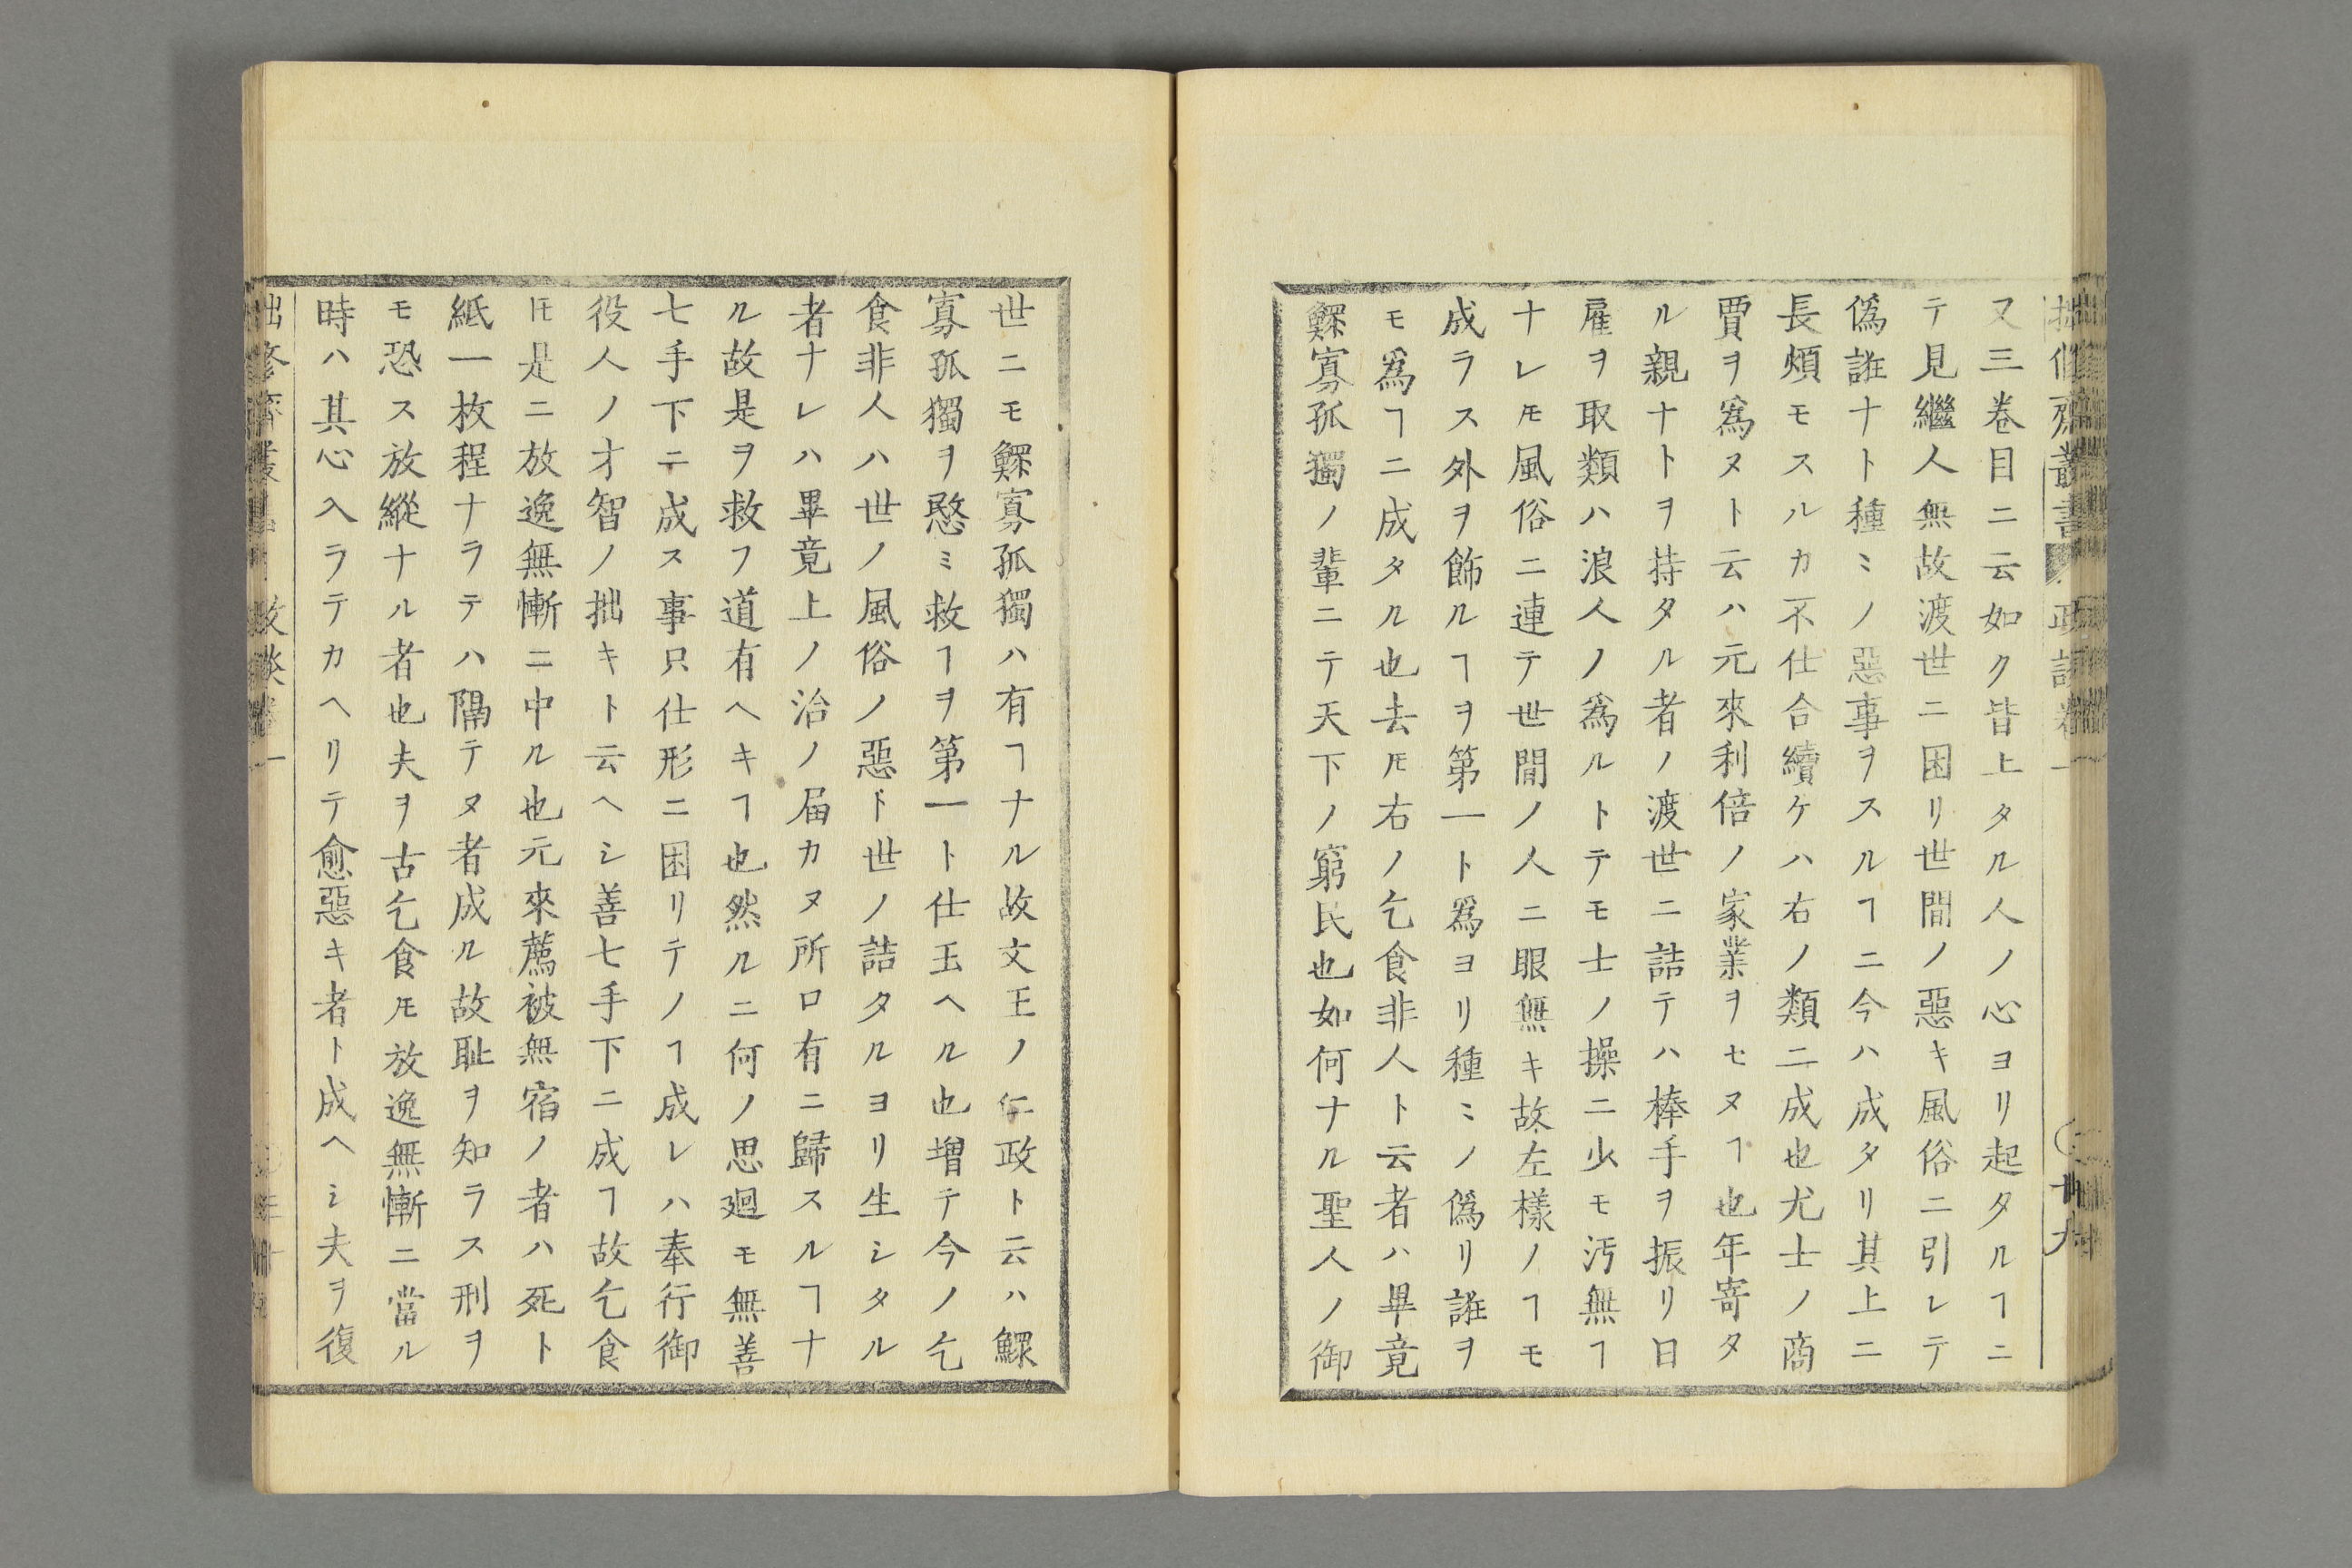 拙修齋叢書 政談卷一 廿九
又三巻目ニ云如ク皆上タル人ノ心ヨリ起タルヿニ
テ見繼人無故渡世ニ困リ世間ノ惡キ風俗ニ引レテ
僞誑ナト種ミノ惡事ヲスルヿニ今ハ成タリ其上ニ
長煩モスルカ不仕合續ケハ右ノ類ニ成也尤士ノ商
賈ヲ爲ヌト云ハ元來利倍ノ家業ヲセヌヿ也年寄タ
ル親ナトヲ持タル者ノ渡世ニ詰テハ棒手ヲ振リ日
雇ヲ取類ハ浪人ノ爲ルトテモ士ノ操ニ少モ汚無ヿ
ナレ𪜈風俗ニ連テ世間ノ人ニ眼無キ故左樣ノヿモ
成ラス外ヲ飾ルヿヲ第一ト爲ヨリ種ミノ僞リ誑ヲ
モ爲ヿニ成タル也去𪜈右ノ乞食非人ト云者ハ畢竟
鰥寡孤獨ノ輩ニテ天下ノ窮民也如何ナル聖人ノ御
世ニモ鰥寡孤獨ハ有ヿナル故文王ノ仁政ト云ハ鰥
寡孤獨ヲ愍ミ救ヿヲ第一ト仕玉ヘル也増テ今ノ乞
食非人ハ世ノ風俗ノ惡ト世ノ詰タルヨリ生シタル
者ナレハ畢竟上ノ治ノ届カヌ所ロ有ニ歸スルヿナ
ル故是ヲ救フ道有ヘキヿ也然ルニ何ノ思廻モ無善
七手下ニ成ス事只仕形ニ困リテノヿ成レハ奉行御
役人ノ才智ノ拙キト云ヘシ善七手下ニ成ヿ故乞食
𪜈是ニ放逸無慚ニ中ル也元來薦被無宿ノ者ハ死ト
紙一枚程ナラテハ隔テヌ者成ル故耻ヲ知ラス刑ヲ
モ恐ス放縱ナル者也夫ヲ古乞食𪜈放逸無慚ニ當ル
時ハ其心入ラテカヘリテ愈惡キ者ト成ヘシ夫ヲ復
拙修齋叢書 政談卷一